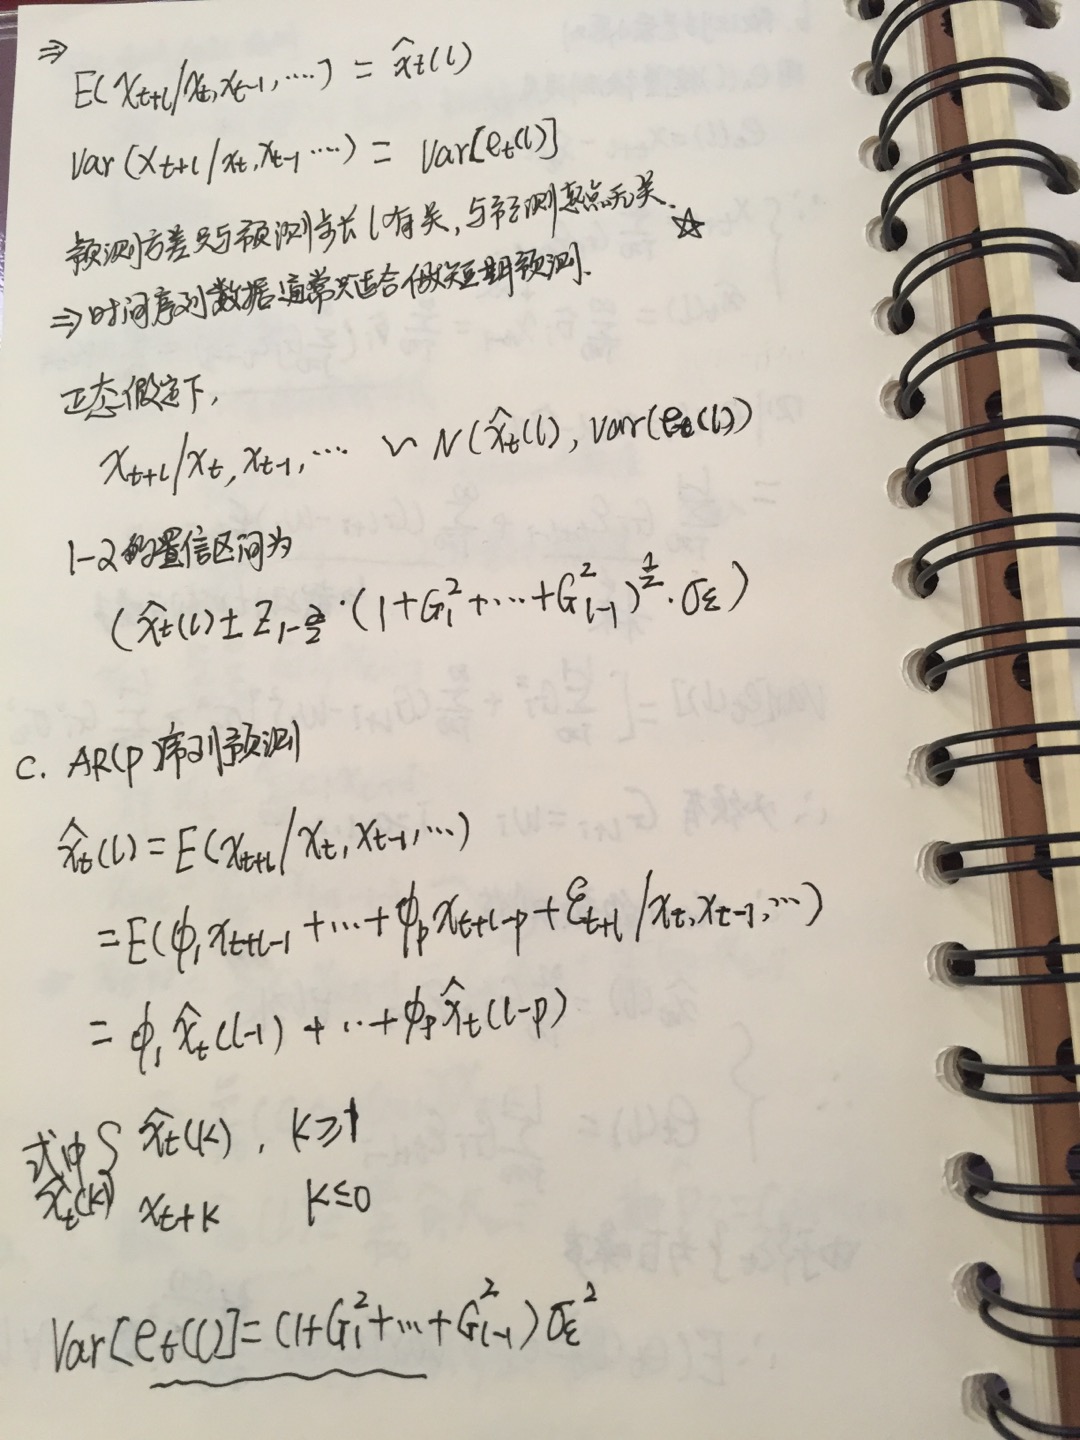 ⇒
E(x_{t+l}/x_t,x_{t-1},····) = x̂_t(l)
Var(x_{t+l}/x_t,x_{t-1}····) = Var[e_t(l)]
预测方差只与预测步长l有关,与预测起点无关. ☆
⇒时间序列数据通常只适合做短期预测.
正态假定下,
x_{t+l}/x_t,x_{t-1},···· ~ N(x̂_t(l), Var(e_t(l))
1-α的置信区间为
(x̂_t(l)±Z_{1-α/2}·(1+G_1^2+···+G_{l-1}^2)^{1/2}·σ_ε)
c. AR(p)序列预测
x̂_t(l)=E(x_{t+l}/x_t,x_{t-1},···)
=E(φ_1x_{t+l-1}+···+φ_px_{t+l-p}+ε_{t+l}/x_t,x_{t-1},···)
= φ_1x̂_t(l-1)+···+φ_px̂_t(l-p)
式中 { x̂_t(k), k≥1
x̂_t(k) x_{t+k} k≤0
Var[e_t(l)]=(1+G_1^2+···+G_{l-1}^2)σ_ε^2